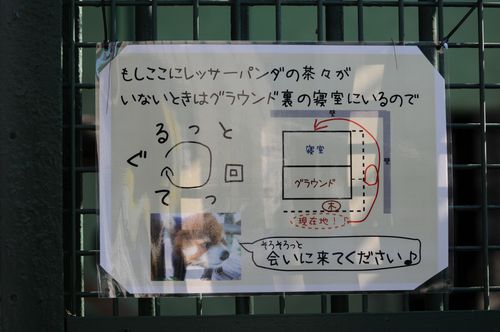 もしここにレッサーパンダの茶々が
いないときはグラウンド裏の寝室にいるので
ぐるっと回って
壁
寝室
壁
グラウンド
木
現在地!
そろそろっと
会いに来てください♪